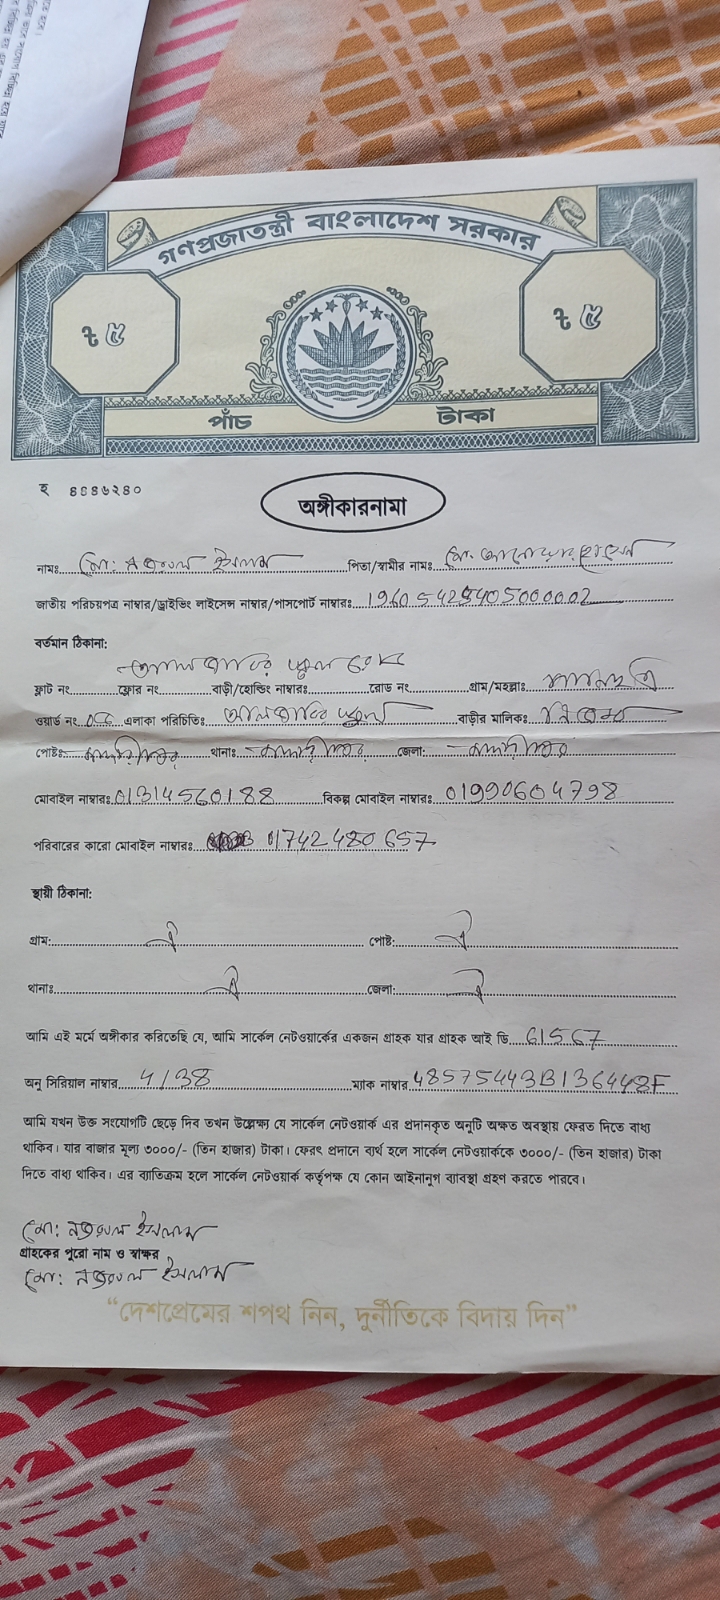 গণপ্রজাতন্ত্রী বাংলাদেশ সরকার
৳ ৫ ৳ ৫
পাঁচ টাকা
অঙ্গীকারনামা
নামঃ মো: নজরুল ইসলাম পিতা/স্বামীর নামঃ মো. আনোয়ার হোসেন
জাতীয় পরিচয়পত্র নাম্বার/ড্রাইভিং লাইসেন্স নাম্বার/পাসপোর্ট নাম্বারঃ
বর্তমান ঠিকানা:
ফ্লাট নং ফ্লোর নং বাড়ী/হোল্ডিং নাম্বারঃ রোড নং গ্রাম/মহল্লাঃ
ওয়ার্ড নং এলাকা পরিচিতিঃ বাড়ীর মালিকঃ
পোষ্টঃ থানাঃ জেলা:
মোবাইল নাম্বারঃ 01314560188 বিকল্প মোবাইল নাম্বারঃ 01990604798
পরিবারের কারো মোবাইল নাম্বারঃ 01742480657
স্থায়ী ঠিকানা:
গ্রাম: ঐ পোষ্ট: ঐ
থানাঃ ঐ জেলা: ঐ
আমি এই মর্মে অঙ্গীকার করিতেছি যে, আমি সার্কেল নেটওয়ার্কের একজন গ্রাহক যার গ্রাহক আই ডি 61567
অনু সিরিয়াল নাম্বার 4/38 ম্যাক নাম্বার 48575443B136448F
আমি যখন উক্ত সংযোগটি ছেড়ে দিব তখন উল্লেক্ষ্য যে সার্কেল নেটওয়ার্ক এর প্রদানকৃত অনুটি অক্ষত অবস্থায় ফেরত দিতে বাধ্য
থাকিব। যার বাজার মূল্য ৩০০০/- (তিন হাজার) টাকা। ফেরৎ প্রদানে ব্যর্থ হলে সার্কেল নেটওয়ার্ককে ৩০০০/- (তিন হাজার) টাকা
দিতে বাধ্য থাকিব। এর ব্যতিক্রম হলে সার্কেল নেটওয়ার্ক কর্তৃপক্ষ যে কোন আইনানুগ ব্যাবস্থা গ্রহণ করতে পারবে।
মো: নজরুল ইসলাম
গ্রাহকের পুরো নাম ও স্বাক্ষর
মো: নজরুল ইসলাম
“দেশপ্রেমের শপথ নিন, দুর্নীতিকে বিদায় দিন”